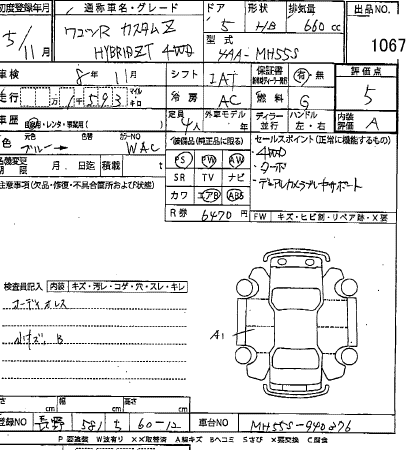 初度登録年月 通称車名・グレード ドア 形状 排気量 出品NO
5/11月 ワゴンR カスタムZ HYBRID ZT 4WD 5 H/B 660cc 1067
型式 4AA-MH55S
車検 8年11月 シフト IAT 保証書 有・無 評価点
走行 1593 マイル キロ 冷房 AC 燃料 G 5
車歴 自家用・レンタ・事業用( ) 定員 4人 外車モデル 年 ディーラー 並行 ハンドル 左・右 内装評価 A
色 ブルー→ 色替 カラーNO WAC 装備品(純正品に限る) セールスポイント(正常に機能するもの)
名義変更期限 月 日迄 積載 t PS PW AW ・4WD
注意事項(欠品・修復・不具合箇所および状態) SR TV ナビ ・ターボ
カワ エアB ABS ・デュアルカメラブレーキサポート
R券 6470円 FW キズ・ヒビ割・リペア跡・X要
検査員記入 内装 キズ・汚レ・コゲ・穴・スレ・キレ
コーティガレス
小キズ、B
A1
長さ cm 幅 cm 高さ cm
登録NO 長野 581 ち 60-12 車台NO MH55S-940276
P要塗装 W波有り XX取替済 A線キズ Bヘコミ Sさび X要交換 C腐食